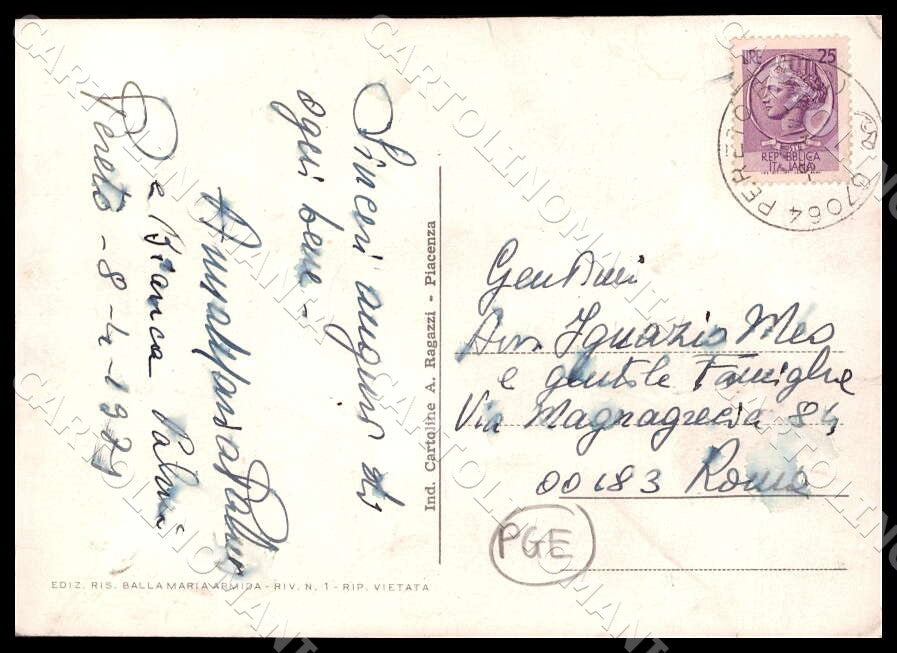 Sinceri auguri di
ogni bene -
Anna Maria Palma
e Franca Palma
Pereto - 8-4-1979
Ind. Cartoline A. Ragazzi - Piacenza
EDIZ. RIS. BALLA MARIA ARMIDA - RIV. N. 1 - RIP. VIETATA
LIRE 25
POSTE
REPUBBLICA
ITALIANA
67064 PERETO
Gentmi
Avv. Ignazio Meo
e gentile Famiglia
Via Magnagrecia 84
00183 Roma
PGE
CARTOLINOMANIA